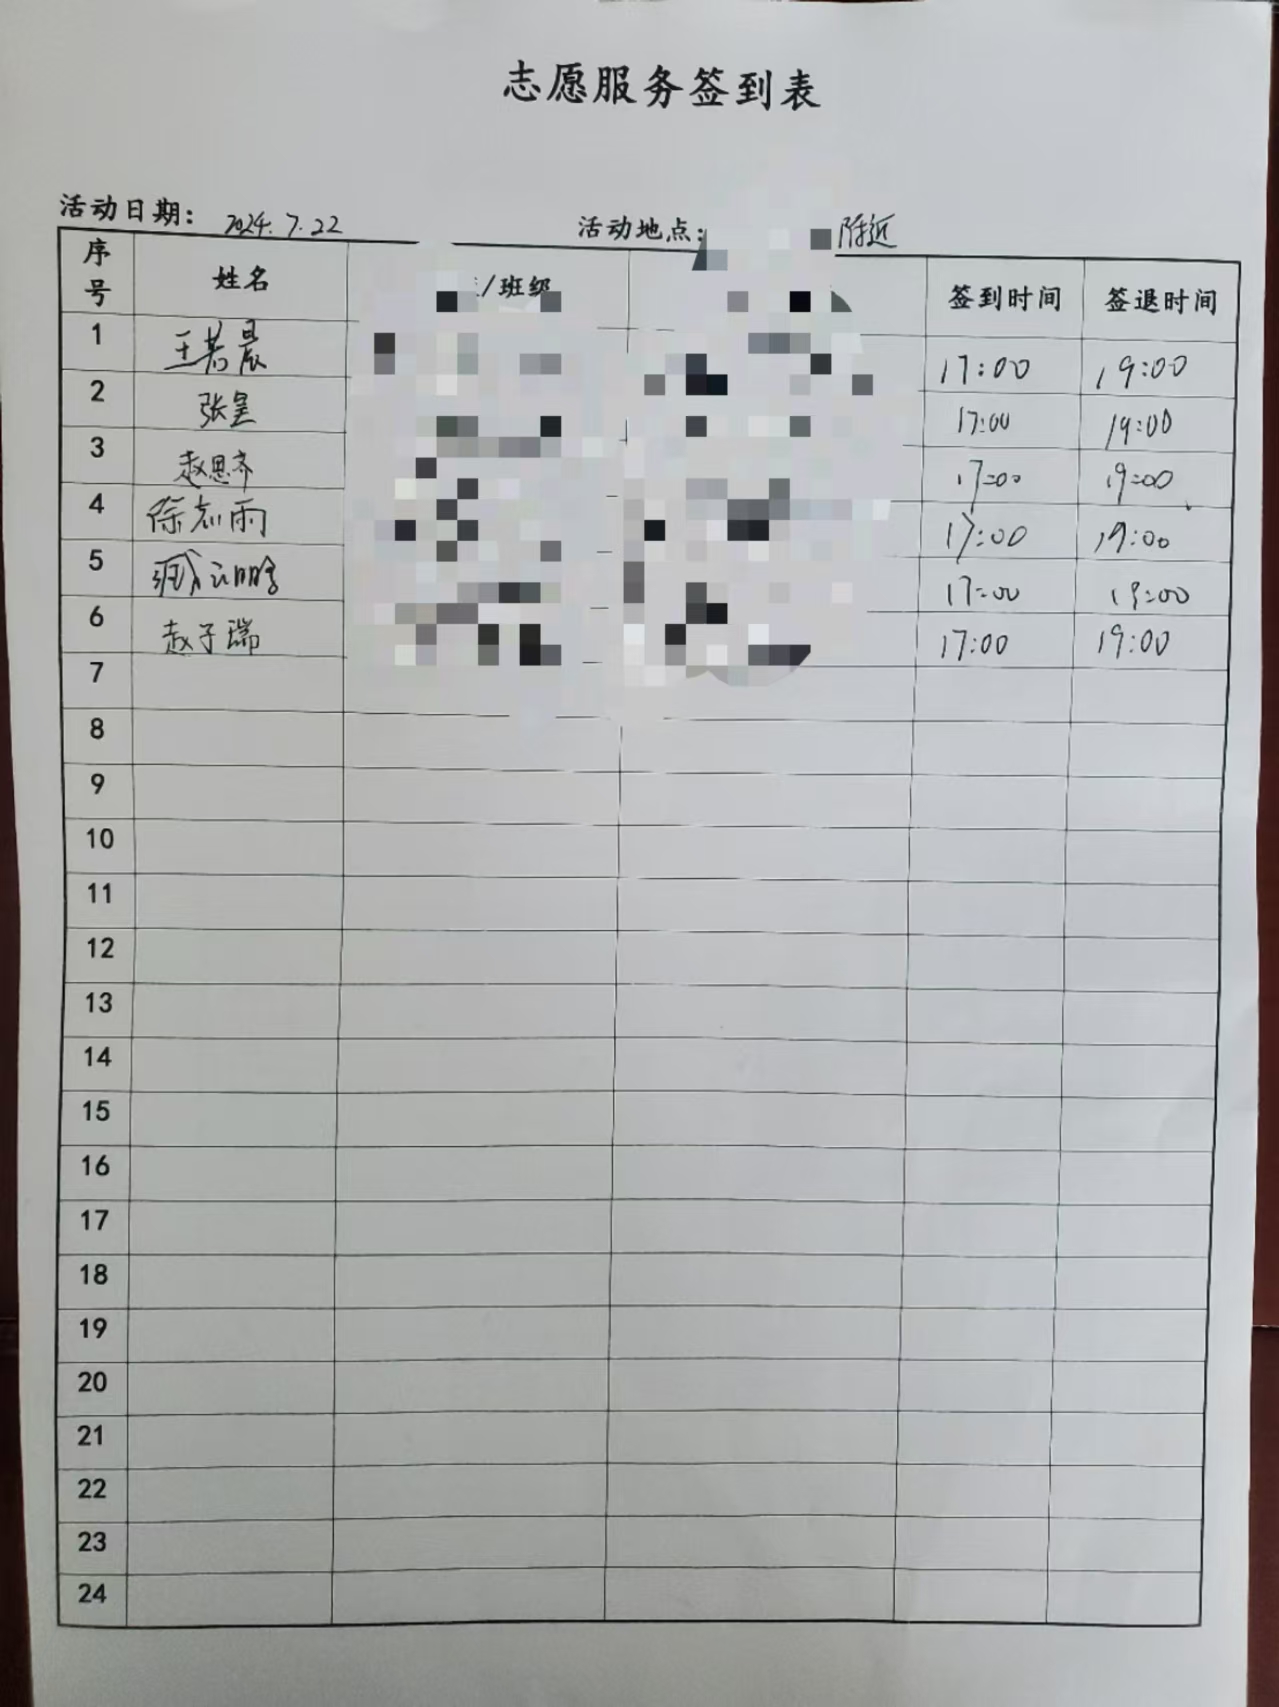 志愿服务签到表
活动日期: 2024.7.22 活动地点: 附近
序号 姓名 /班级 签到时间 签退时间
1 王若晨 17:00 19:00
2 张昱 17:00 19:00
3 赵思齐 17:00 19:00
4 徐志雨 17:00 19:00
5 臧云鹏 17:00 19:00
6 赵子瑞 17:00 19:00
7
8
9
10
11
12
13
14
15
16
17
18
19
20
21
22
23
24